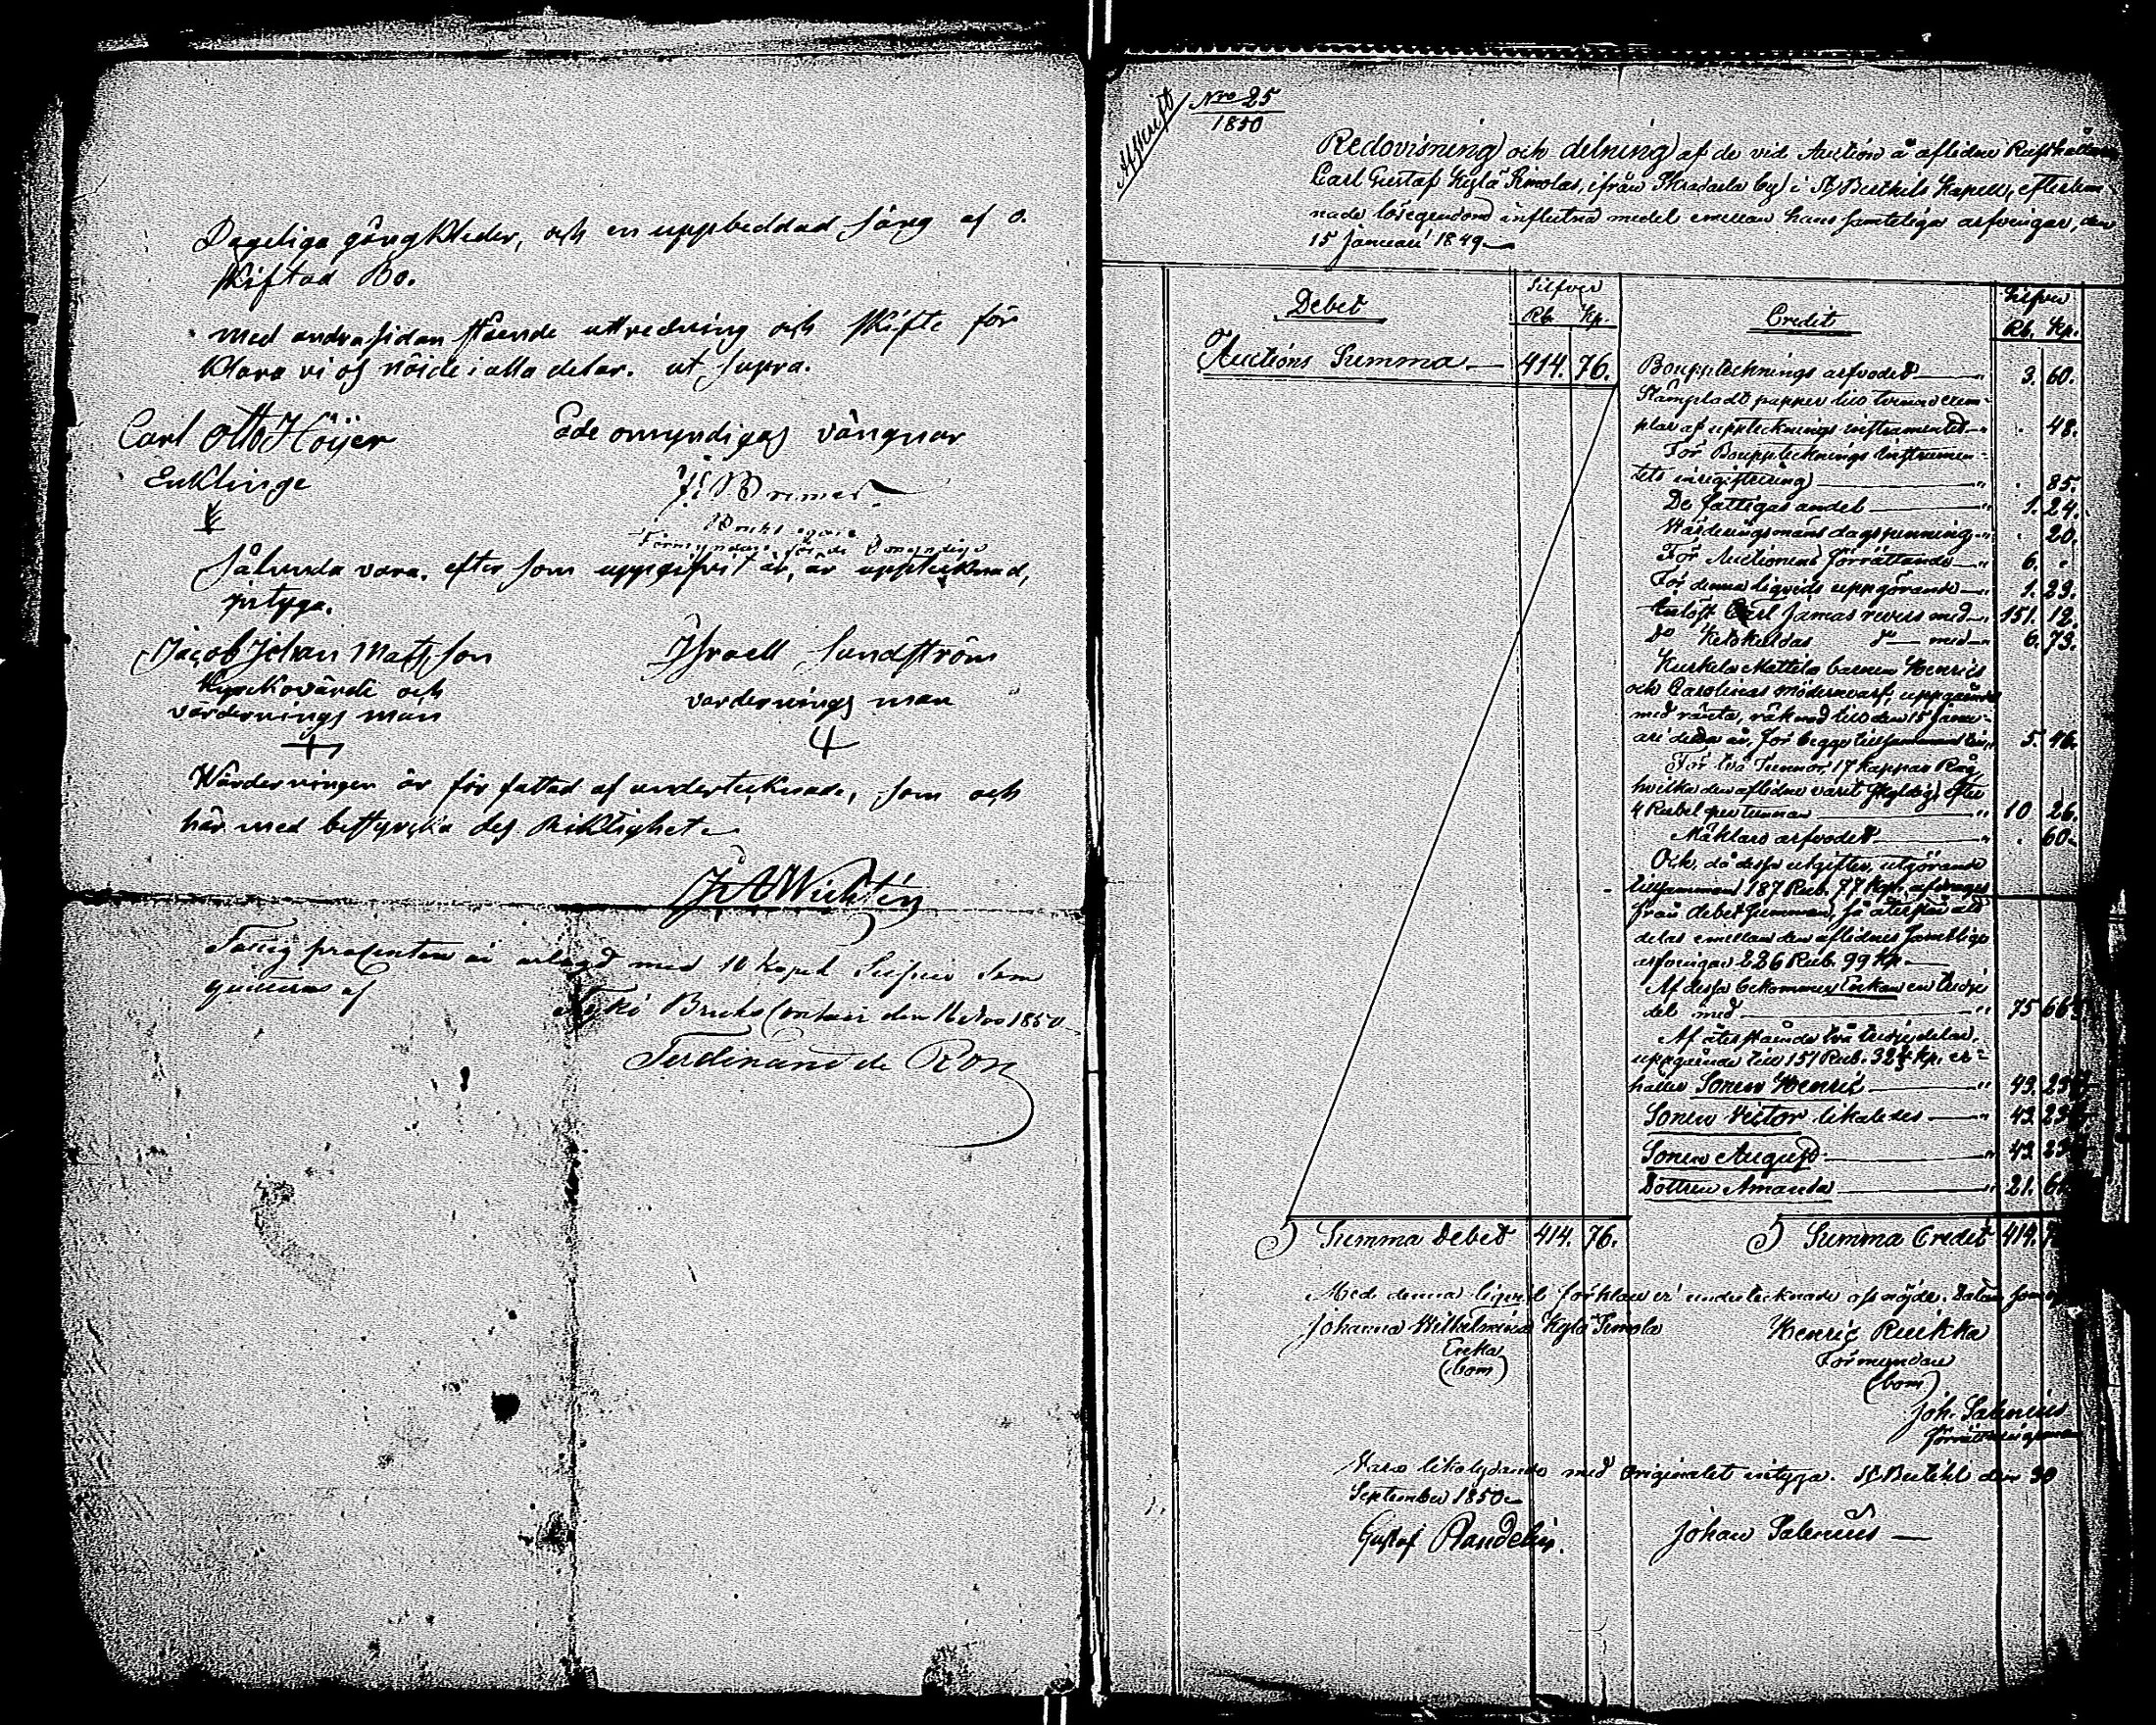 Dageliga gångkleder, och en uppbeddad säng af o.
skiftad Bo.
med andra sidan stående uttredning och skifte för
klara vi oss nöide i alla delar. ut supra.
Carl Otto Höijer
Enklinge
På de omyndigas vängnar
Bremer
Förmyndare för de Omyndige
Sålunda vara, efter som uppgifvit är, är upptecknad,
intyga.
Jacob Johan Matsson
Kyrckovärde och
värdernings man
Israell Sundström
vardernings man
Wärderningen är för fattad af undertecknade, som och
här med bettyrcka des Riktighet.
Fattig procenten är erlagd med 10 Kopek Silfver som
quitteras af
Bruks Contoir den 16 Nov 1850
Ferdinand de Ron
Afskrift
Nro 25
1850
Redovisning och delning af de vid Auction å aflidne
Carl Gustaf Kylä Simolas, ifrån by i St Bertils Kapell, efterläm-
nade lösegendom influtna medel emellan hans samteliga arfvingar, den
15 Januari 1849
Debet
Silfver
Rb. Kp.
Auctions Summa 414. 76.
Credit
Silfver
Rb. Kp.
Bouppteknings arfvodet " 3. 60.
Stämpladt papper till tvenne exem-
plar af uppteknings instrumentet " . 48.
För Bouppteknings instrumen-
tets inregistrering " . 85.
De fattigas andel " 1. 24.
Wärderingsmäns dagspenning " . 20.
För Auctionens förrättande " 6. "
För denna liqvids uppgörande " 1. 23.
Inlöst Carl Jamas revers med " 151. 12.
Do d° med " 6. 73.
Mattila barnen Henrics
och Carolinas mödernearf, uppgående
med ränta, räknad till den 15 Janu-
ari detta år, för begge tillsammans till " 5. 46.
För två Tunnor, 17 kappar Råg,
hvilka den aflidne varit skyldig, efter
4 Rubel per tunnan " 10 26.
Mäklars arfvodet " . 60.
Och, då dessa utgifter, utgörande
tillsammans 187 Rub. 77 Kp. afdrages
från debet Summan, så återstår att
delas emellan den aflidnes samtlige
arfvingar 226 Rub. 99 Kp.
Af dessa bekommer Enkan en tredje
del med " 75 66
Af återstående två tredjedelar,
uppgående till 151 Rub. 32 Kp. er-
håller Sonen Henric " 43. 23
Sonen Victor likaledes " 43 23
Sonen August " 43 23
Dottren Amanda " 21. 6
Summa Debet 414. 76.
Summa Credit 414. 7
Med denna liqvid förklare vi undertecknade oss nöjde. Datum som
Johanna Wilhelmina Kylä Simola
Enka
(bom)
Henric Ruikka
Förmyndare
(bom)
Joh. Salenius
förrättningsman
Vara likalydande med Originalet intyga. St Bertils den 30
September 1850
Gustaf Randelin.
Johan Salenius